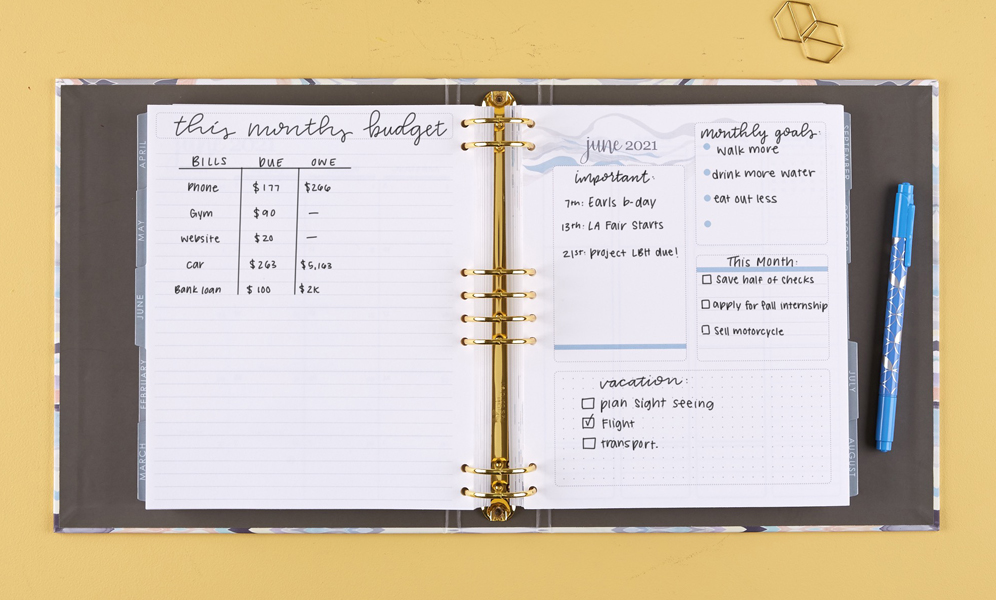 this months budget
BILLS DUE OWE
Phone $177 $266
Gym $90 —
website $20 —
car $263 $5,163
Bank loan $100 $2K
APRIL
MAY
JUNE
FEBRUARY
MARCH
june 2021
important:
7th: Earls b-day
13th: LA Fair Starts
21st: project LBH due!
monthly goals:
walk more
drink more water
eat out less
This Month:
Save half of checks
apply for fall internship
Sell motorcycle
vacation:
plan sight seeing
Flight
transport.
SEPTEMBER
JULY
AUGUST